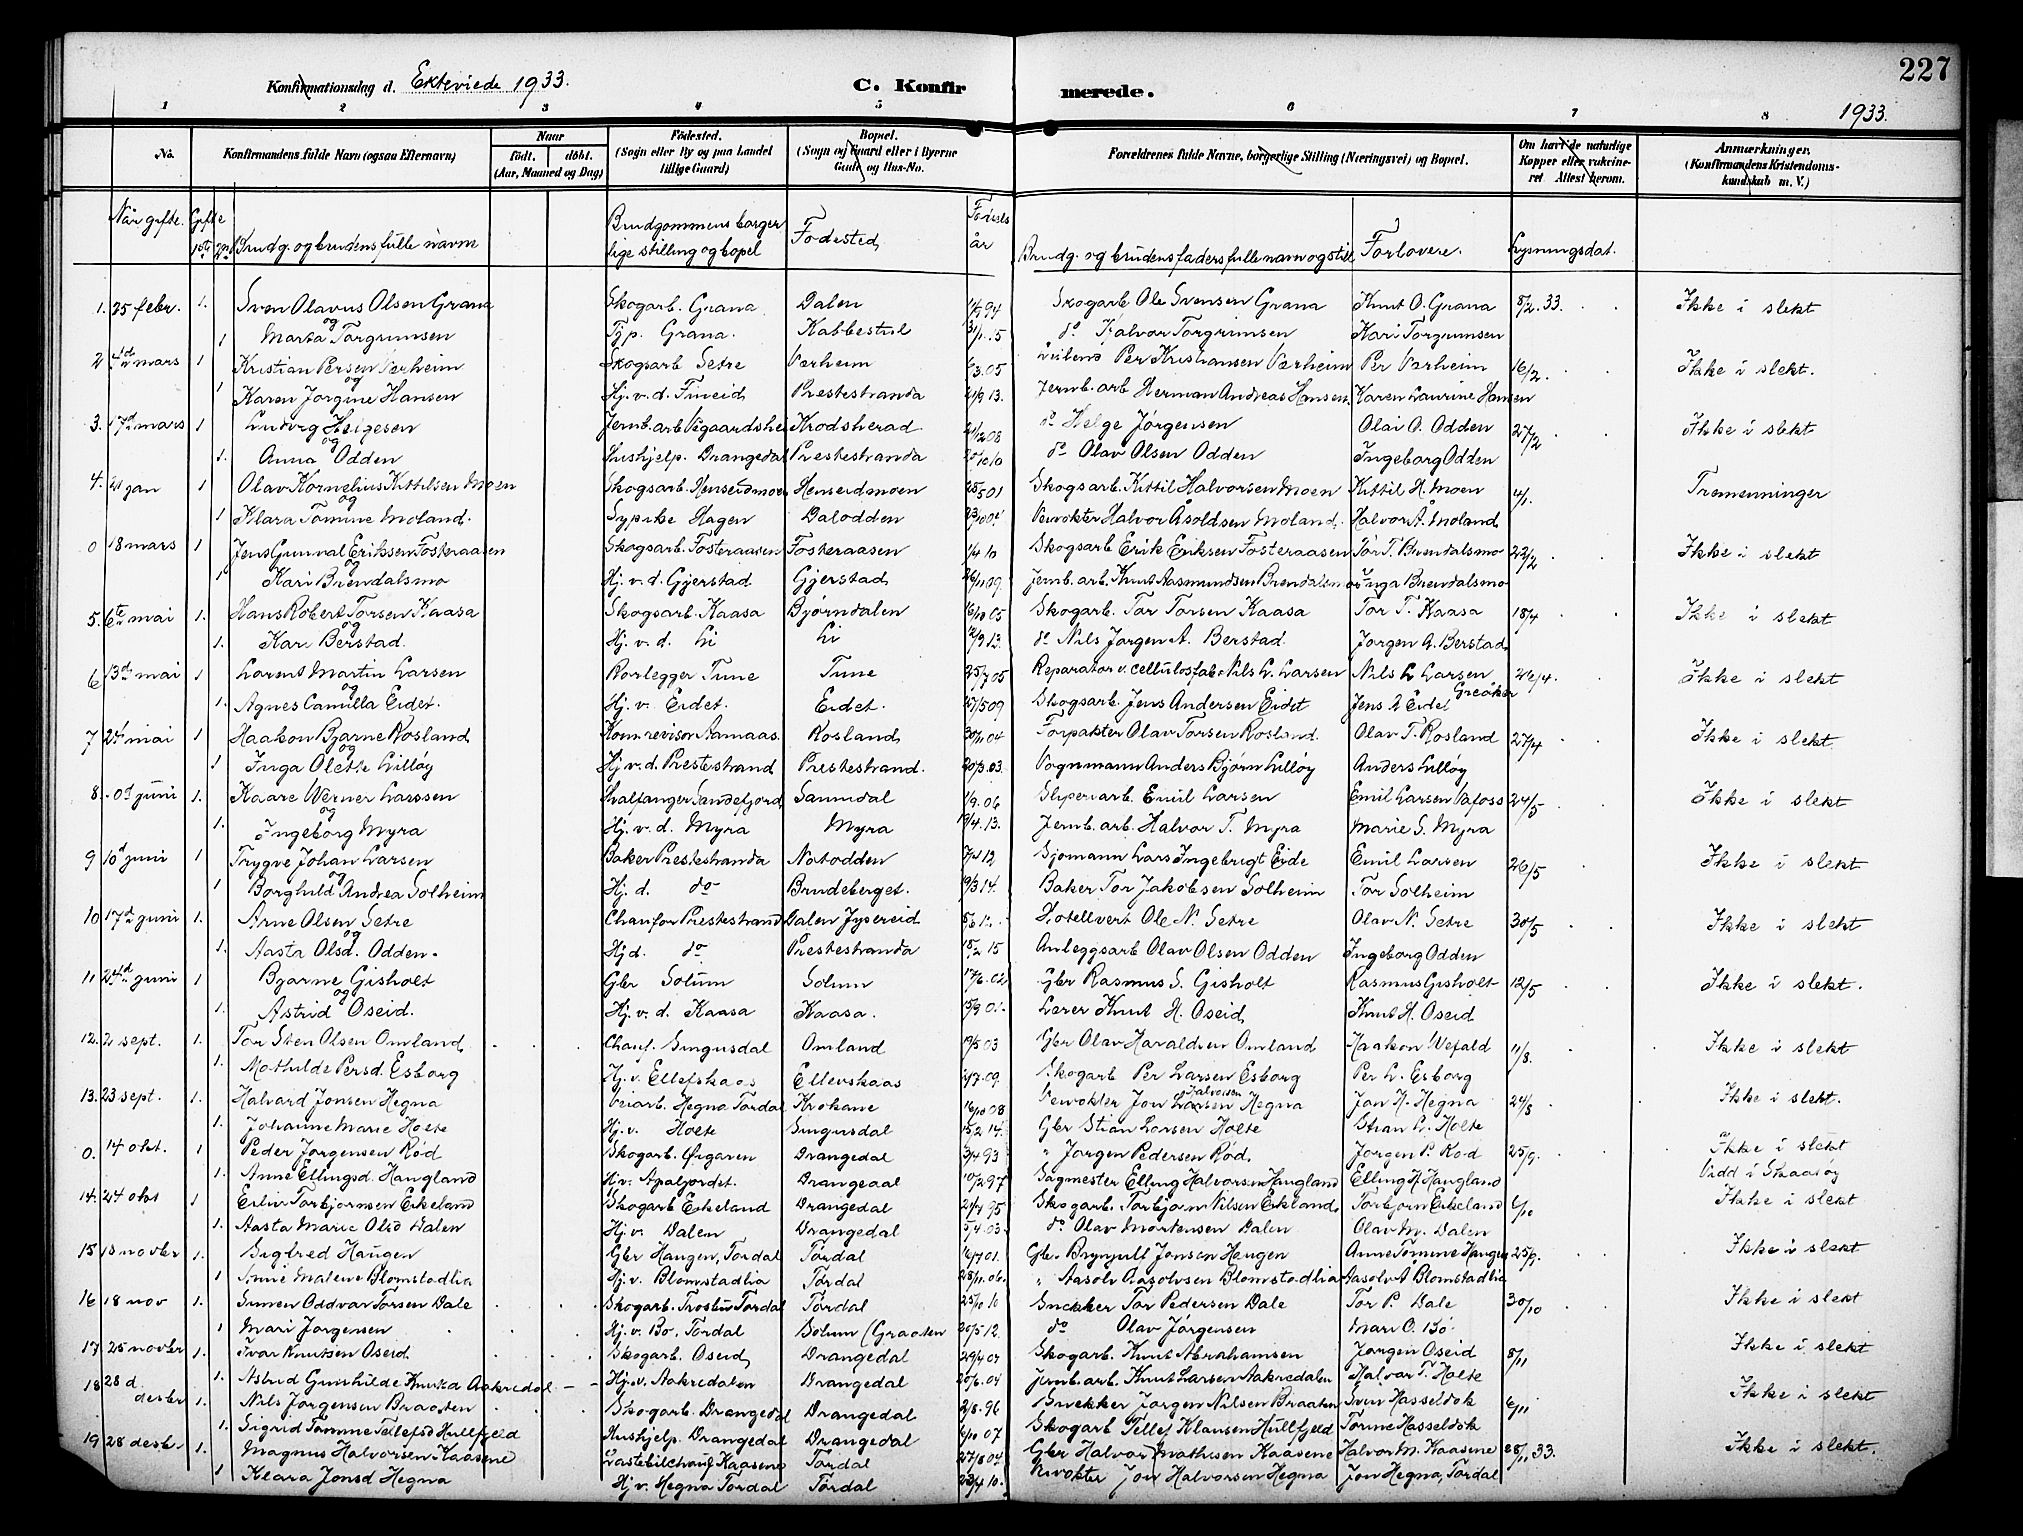 227
Konfirmationsdag d. Ekteviede 1933.
C. Konfirmerede.
1933.
1 2 3 4 5 6 7 8
No.
Konfirmandens fulde Navn (ogsaa Efternavn)
Naar
født. døbt.
(Aar, Maaned og Dag)
Fødested.
(Sogn eller By og paa Landet
tillige Gaard)
Bopæl.
(Sogn og Gaard eller i Byerne
Gade og Hus-No.
Forældrenes fulde Navne, borgerlige Stilling (Næringsvei) og Bopæl.
Om havt de naturlige
Kopper eller vakcine-
ret Attest herom.
Anmærkninger.
(Konfirmandens Kristendoms-
kundskab m. V.)
Når gifte. Gifte Brudg. og brudens fulle navn Brudgommens borger lige stilling og bopel Fødested Fødsels år Brudg. og brudens faders fulle navn og still. Forlovere. Lysningsdat.
1. 25 febr. 1. Sven Olavus Olsen Grana Skogarb. Grana Dalen 94 Skogarb Ole Svensen Grana Knut O. Grana 8/2. 33. Ikke i slekt
og
1 Marta Torgrimsen Tjp. Grana. Kabbestul 15 do Halvor Torgrimsen Kari Torgrimsen
2 4de mars 1 Kristian Persen Værheim Skogsarb Setre Værheim 6/3.05 Per Kristiansen Værheim Per Værheim 16/2. Ikke i slekt.
og
1 Karen Jørgine Hansen Hj. v. d. Fineid Prestestranda 21/9 13. Jernb. arb Herman Andreas Hansen Karen Laurine Hansen
3. 17de mars 1 Ludvig Helgesen Jernb. arb Vegaardshei Krødsherad 21/12 08 do Helge Jørgensen Olai O. Odden 27/2 Ikke i slekt
og
1. Anna Odden Hushjelp. Drangedal Prestestranda 10 do Olav Olsen Odden Ingeborg Odden
4. 21 jan 1 Olav Kornelius Kittilsen Moen Skogsarb. Henseidmoen Henseidmoen 25/5 01 Skogsarb. Kittil Halvorsen Moen Kittil H. Moen 4/1. Tremenninger
og
1 Klara Tomine Moland. Sypike Hagen Dalodden Veivokter Halvor Asoldsen Moland. Halvor A. Moland
0 18 mars 1 Jens Gunval Eriksen Fosteraasen Skogsarb. Fosteraasen Fosteraasen 1/4 10 Skogsarb Erik Eriksen Fosteraasen Tor T. Brendalsmo 22/2 Ikke i slekt
og
1 Kari Brendalsmo Hj. v. d. Gjerstad Gjerstad 26/11 09. Jernb. arb. Knut Aasmundsen Brendalsmo Inga Brendalsmo
5. 6te mai 1. Hans Robert Torsen Kaasa Skogsarb. Kaasa Bjørndalen 16/10 05 Skogarb. Tor Torsen Kaasa Tor T. Kaasa 18/4 Ikke i slekt
og
1. Kari Berstad. Hj. v. d. Li Li 12/9 13. do Nils Jørgen A. Berstad. Jørgen A. Berstad
6 13de mai 1 Laurits Martin Larsen Rørlegger Tune Tune 25/7 05 Reparatør v. cellulosfab. Nils L. Larsen Nils L Larsen Greåker 26/4. Ikke i slekt
og
1. Agnes Camilla Eidet. Hj. v. Eidet. Eidet. 27/5 09 Skogsarb. Jens Andersen Eidet Jens A Eidet
7 mai 1 Haakon Bjarne Rosland Kom. revisor Aamaas Rosland 30/11 04 Forpakter Olav Torsen Rosland. Olav T. Rosland 27/4 Ikke i slekt
og
1 Inga Olette Lilløy Hj. v. d. Prestestrand Prestestrand. 20/3.03. Vognmann Anders Bjørn Lilløy Anders Lilløy
8. juni 1. Kaare Werner Larssen Hvalfanger Sandefjord Sannidal 1/9. 06 Sliperiarb. Emil Larsen Emil Larsen Vafoss 24/5 Ikke i slekt
og
1. Ingeborg Myra Hj. v. d. Myra Myra 19/4. 13. Jernb. arb. Halvor T. Myra Marie S. Myra
9 10d juni 1 Trygve Johan Larsen Baker Prestestranda Notodden 12 Sjømann Lars Ingebrigt Eide Emil Larsen 26/5 Ikke i slekt
og
1 Borghild Andrea Solheim Hj. d. do Brudeberget. 19/3 14. Baker Tor Jakobsen Solheim Tor Solheim
10 17de juni 1. Arne Olsen Setre Chaufør Prestestrand Dalen Jysereid Hotellvert Ole N. Setre Olav N. Setre 30/5 Ikke i slekt
og
1. Aasta Olsd. Odden. Hj d. do Prestestranda 15 Anleggsarb Olav Olsen Odden Ingeborg Odden
11 24de juni 1 Bjarne Gisholt Gbr Solum Solum 17/6. 02 Gbr Rasmus S. Gisholt Rasmus Gisholt 12/5 Ikke i slekt.
og
1. Astrid Oseid. Hj. v. d. Kaasa Kaasa. Lærer Knut H. Oseid Knut H. Oseid
12. 2 sept. 1. Tor Sten Olsen Omland Chauf. Gingusdal Omland 19/5 03 Gbr Olav Haraldsen Omland Haakon Vefald 11/8. Ikke i slekt
1. Mathilde Persd. Esborg Hj. v. Ellefskaas Ellevskaas 09. Skogarb Per Larsen Esborg Per L. Esborg
13. 23 sept. 1. Halvard Jonsen Hegna Veiarb. Hegna Tørdal Krokane 16/10 08 Veivokter Jon Halvorsen Hegna Jon H. Hegna 24/8 Ikke i slekt.
1. Johanne Marie Holte Hj. v. Holte 15/2 14. Gbr Stian Larsen Holte Stian L. Holte
0. 14 okt. 1 Peder Jørgensen Rød Skogarb. Drangedal 3/4 93 " Jørgen Pedersen Rød Jørgen P. Rød 25/9. Ikke i slekt
1. Anne Ellingsd. Haugland Hj. v. Apalfjordet. Drangedal 10/2 97 Sagmester Elling Halvorsen Haugland Elling H Haugland Viddi i Skaasøy
14. 24 okt 1 Torbjørnsen Eikeland Skogarb Eikeland Drangedal 95 Skogarb. Torbjørn Nilsen Eikeland Torbjørn Eikeland 6/10 Ikke i slekt
1. Aasta Marie Olsd Dalen Hj. v. Dalen Drangedal 5/4. 03. do Olav Mortensen Dalen Olav M. Dalen
15 novbr 1. Sigfred Haugen Gbr Haugen, Tørdal Tørdal 16/7 01. Gbr. Brynjulf Jonsen Haugen Anne Tomine Haugen 25/9. Ikke i slekt
1 Anne Malene Blomstadlia Hj. v. Blomstadlia Tørdal 28/11. 06. " Aasolv Aasolvsen Blomstadlia Aasolv A Blomstadlia
16 18 nov 1. Simen Oddvar Torsen Dale Skogarb. Tørdal Tørdal 25/10 10 Snekker Tor Pedersen Dale Tor P. Dale 30/10 Ikke i slekt
1 Mari Jørgensen Hj. v. Bø. Tørdal Solum (Graaten 20/5 12. do Olav Jørgensen Mari O. Bø.
17 25 novbr 1. Ivar Knutsen Oseid Skogarb. Oseid Drangedal 29/4 07 Skogarb. Knut Abrahamsen Jørgen Oseid 8/11 Ikke i slekt
1. Astrid Gunhilde Knutsd Aakredal Hj. v. Aakredalen Drangedal 20/6. 04 Jernb. arb. Knut Larsen Aakredalen Halvor T. Holte
18 28 d. desbr 1. Nils Jørgensen Braaten Skogarb. Drangedal Drangedal 2/8. 96 Snekker Jørgen Nilsen Braaten Sven Hasseldok 6/11 Ikke i slekt
1. Sigrid Tomine Tellefsd Hullfjeld Hushjelp. Drangedal Drangedal 07 Skogarb Tellef Klausen Hullfjeld Tomine Hasseldok
19 28 desb. 1. Magnus Halvorsen Kaasene Lastebilchauf Kaasene Tørdal 27/8 04 Gbr Halvor Mathisen Kaasene Halvor M. Kaasene 28/11 33. Ikke i slekt.
1 Klara Jonsd Hegna Hj. v. Hegna Tørdal Tørdal 23/4 10. Veivokter Jon Halvorsen Hegna Jon Hegna, Tørdal